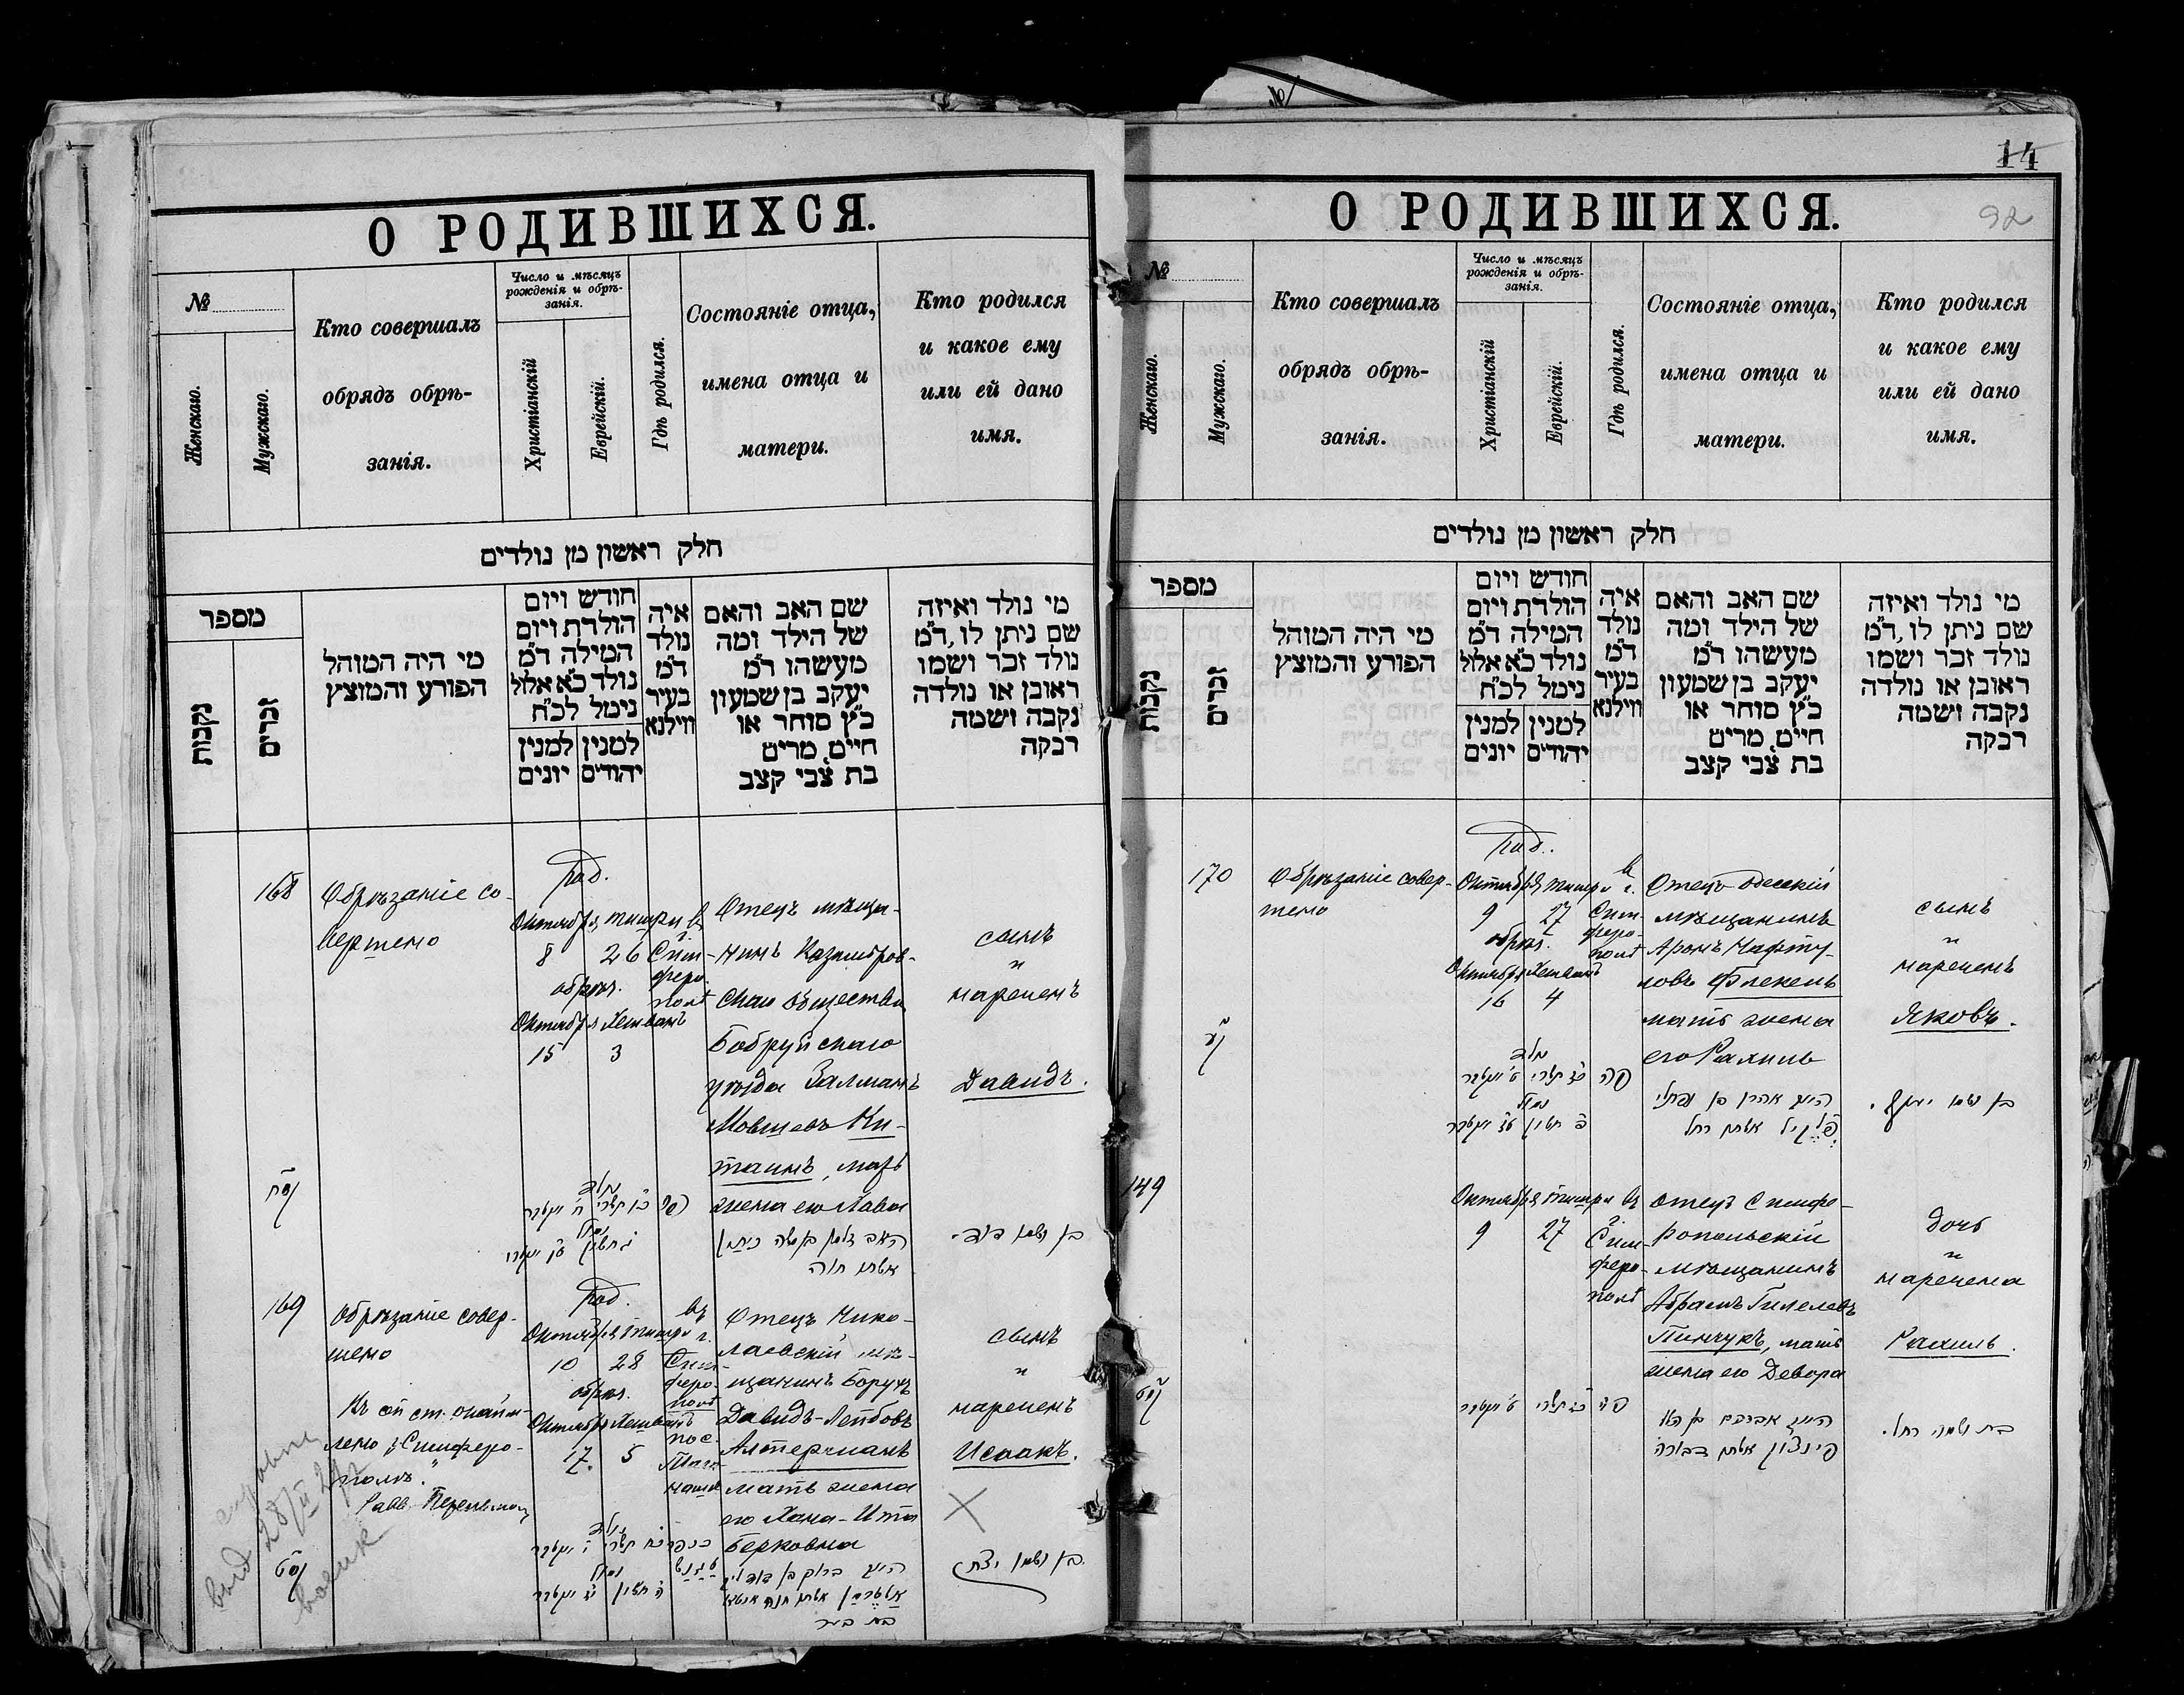 О РОДИВШИХСЯ.
№
Женскаго.
Мужскаго.
Кто совершалъ
обрядъ обрѣ-
занія.
Число и мѣсяцъ
рожденія и обрѣ-
занія.
Христіанскій
Еврейскій.
Гдѣ родился.
Состояніе отца,
имена отца и
матери.
Кто родился
и какое ему
или ей дано
имя.
חלק ראשון מן נולדים
מספר
נקבות
זכרים
מי היה המוהל
הפורע והמוצץ
חודש ויום
הולדת ויום
המילה ד״מ
נולד כ״א אלול
נימל לכ״ח
למנין יונים
למנין יהודים
איה
נולד
ד״מ
בעיר
ווילנא
שם האב והאם
של הילד ומה
מעשהו ד״מ
יעקב בן שמעון
כ״ץ סוחר או
חייט, מרים
בת צבי קצב
מי נולד ואיזה
שם ניתן לו, ד״מ
נולד זכר ושמו
ראובן או נולדה
נקבה ושמה
רבקה
168
Обрѣзаніе со-
вершено
Род.
Октября Тишри въ г.
8 26 Сим-
феро-
обрѣз.
Октября Хешванъ
15 3
Отецъ мѣща-
нинъ Казимиров-
скаго общества
Бобруйскаго
уѣзда Залманъ
Мовшевъ Ки-
таинъ, мать
жена его Хава
сынъ
и
нареченъ
Давидъ.
קסח
אשתו חוה
בן ושמו דוד.
169
Обрѣзаніе совер-
шено
Род.
Октября Тишри въ г.
10 28 Сим-
феро-
обрѣз.
Октября Хешванъ
17. 5
Отецъ Нико-
лаевскій мѣ-
щанинъ Борухъ
Давидъ-Лейбовъ
Альтерманъ
мать жена
его Хана-Ита
Берковна
сынъ
и
нареченъ
Исаакъ.
28/II
קסט
בן ושמו יצחק
14
92
О РОДИВШИХСЯ.
№
Женскаго.
Мужскаго.
Кто совершалъ
обрядъ обрѣ-
занія.
Число и мѣсяцъ
рожденія и обрѣ-
занія.
Христіанскій
Еврейскій.
Гдѣ родился.
Состояніе отца,
имена отца и
матери.
Кто родился
и какое ему
или ей дано
имя.
חלק ראשון מן נולדים
מספר
נקבות
זכרים
מי היה המוהל
הפורע והמוצץ
חודש ויום
הולדת ויום
המילה ד״מ
נולד כ״א אלול
נימל לכ״ח
למנין יונים
למנין יהודים
איה
נולד
ד״מ
בעיר
ווילנא
שם האב והאם
של הילד ומה
מעשהו ד״מ
יעקב בן שמעון
כ״ץ סוחר או
חייט, מרים
בת צבי קצב
מי נולד ואיזה
שם ניתן לו, ד״מ
נולד זכר ושמו
ראובן או נולדה
נקבה ושמה
רבקה
170
Обрѣзаніе совер-
шено
Род.
Октября Тишри в г.
9 27 Сим-
феро-
обрѣз.
Октября Хешванъ
16 4
Отецъ одесскій
мѣщанинъ
Аронъ Нафту-
ловъ
мать жена
его Рахиль
сынъ
и
нареченъ
Яковъ.
קע
אשתו רחל
בן ושמו יעקב.
149
Октября Тишри въ г.
9 27 Сим-
феро-
Отецъ Симфе-
ропольскій
мѣщанинъ
Абрамъ Гилелевъ
Пинчукъ, мать
жена его Девора
дочь
и
наречена
Рахиль.
קמט
אשתו דבורה
בת ושמה רחל.